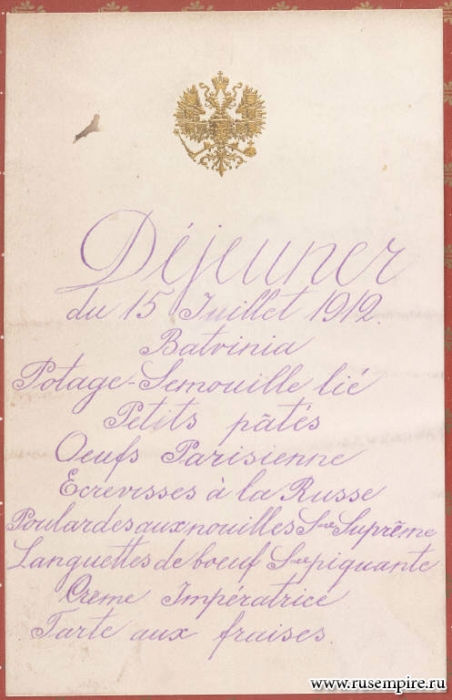 Déjeuner
du 15 Juillet 1912.
Batvinia
Potage-Semouille lié
Petits pâtés
Oeufs Parisienne
Ecrevisses à la Russe
Poulardes aux nouilles Sce Suprême
Languettes de boeuf Sce piquante
Creme Impératrice
Tarte aux fraises.
www.rusempire.ru